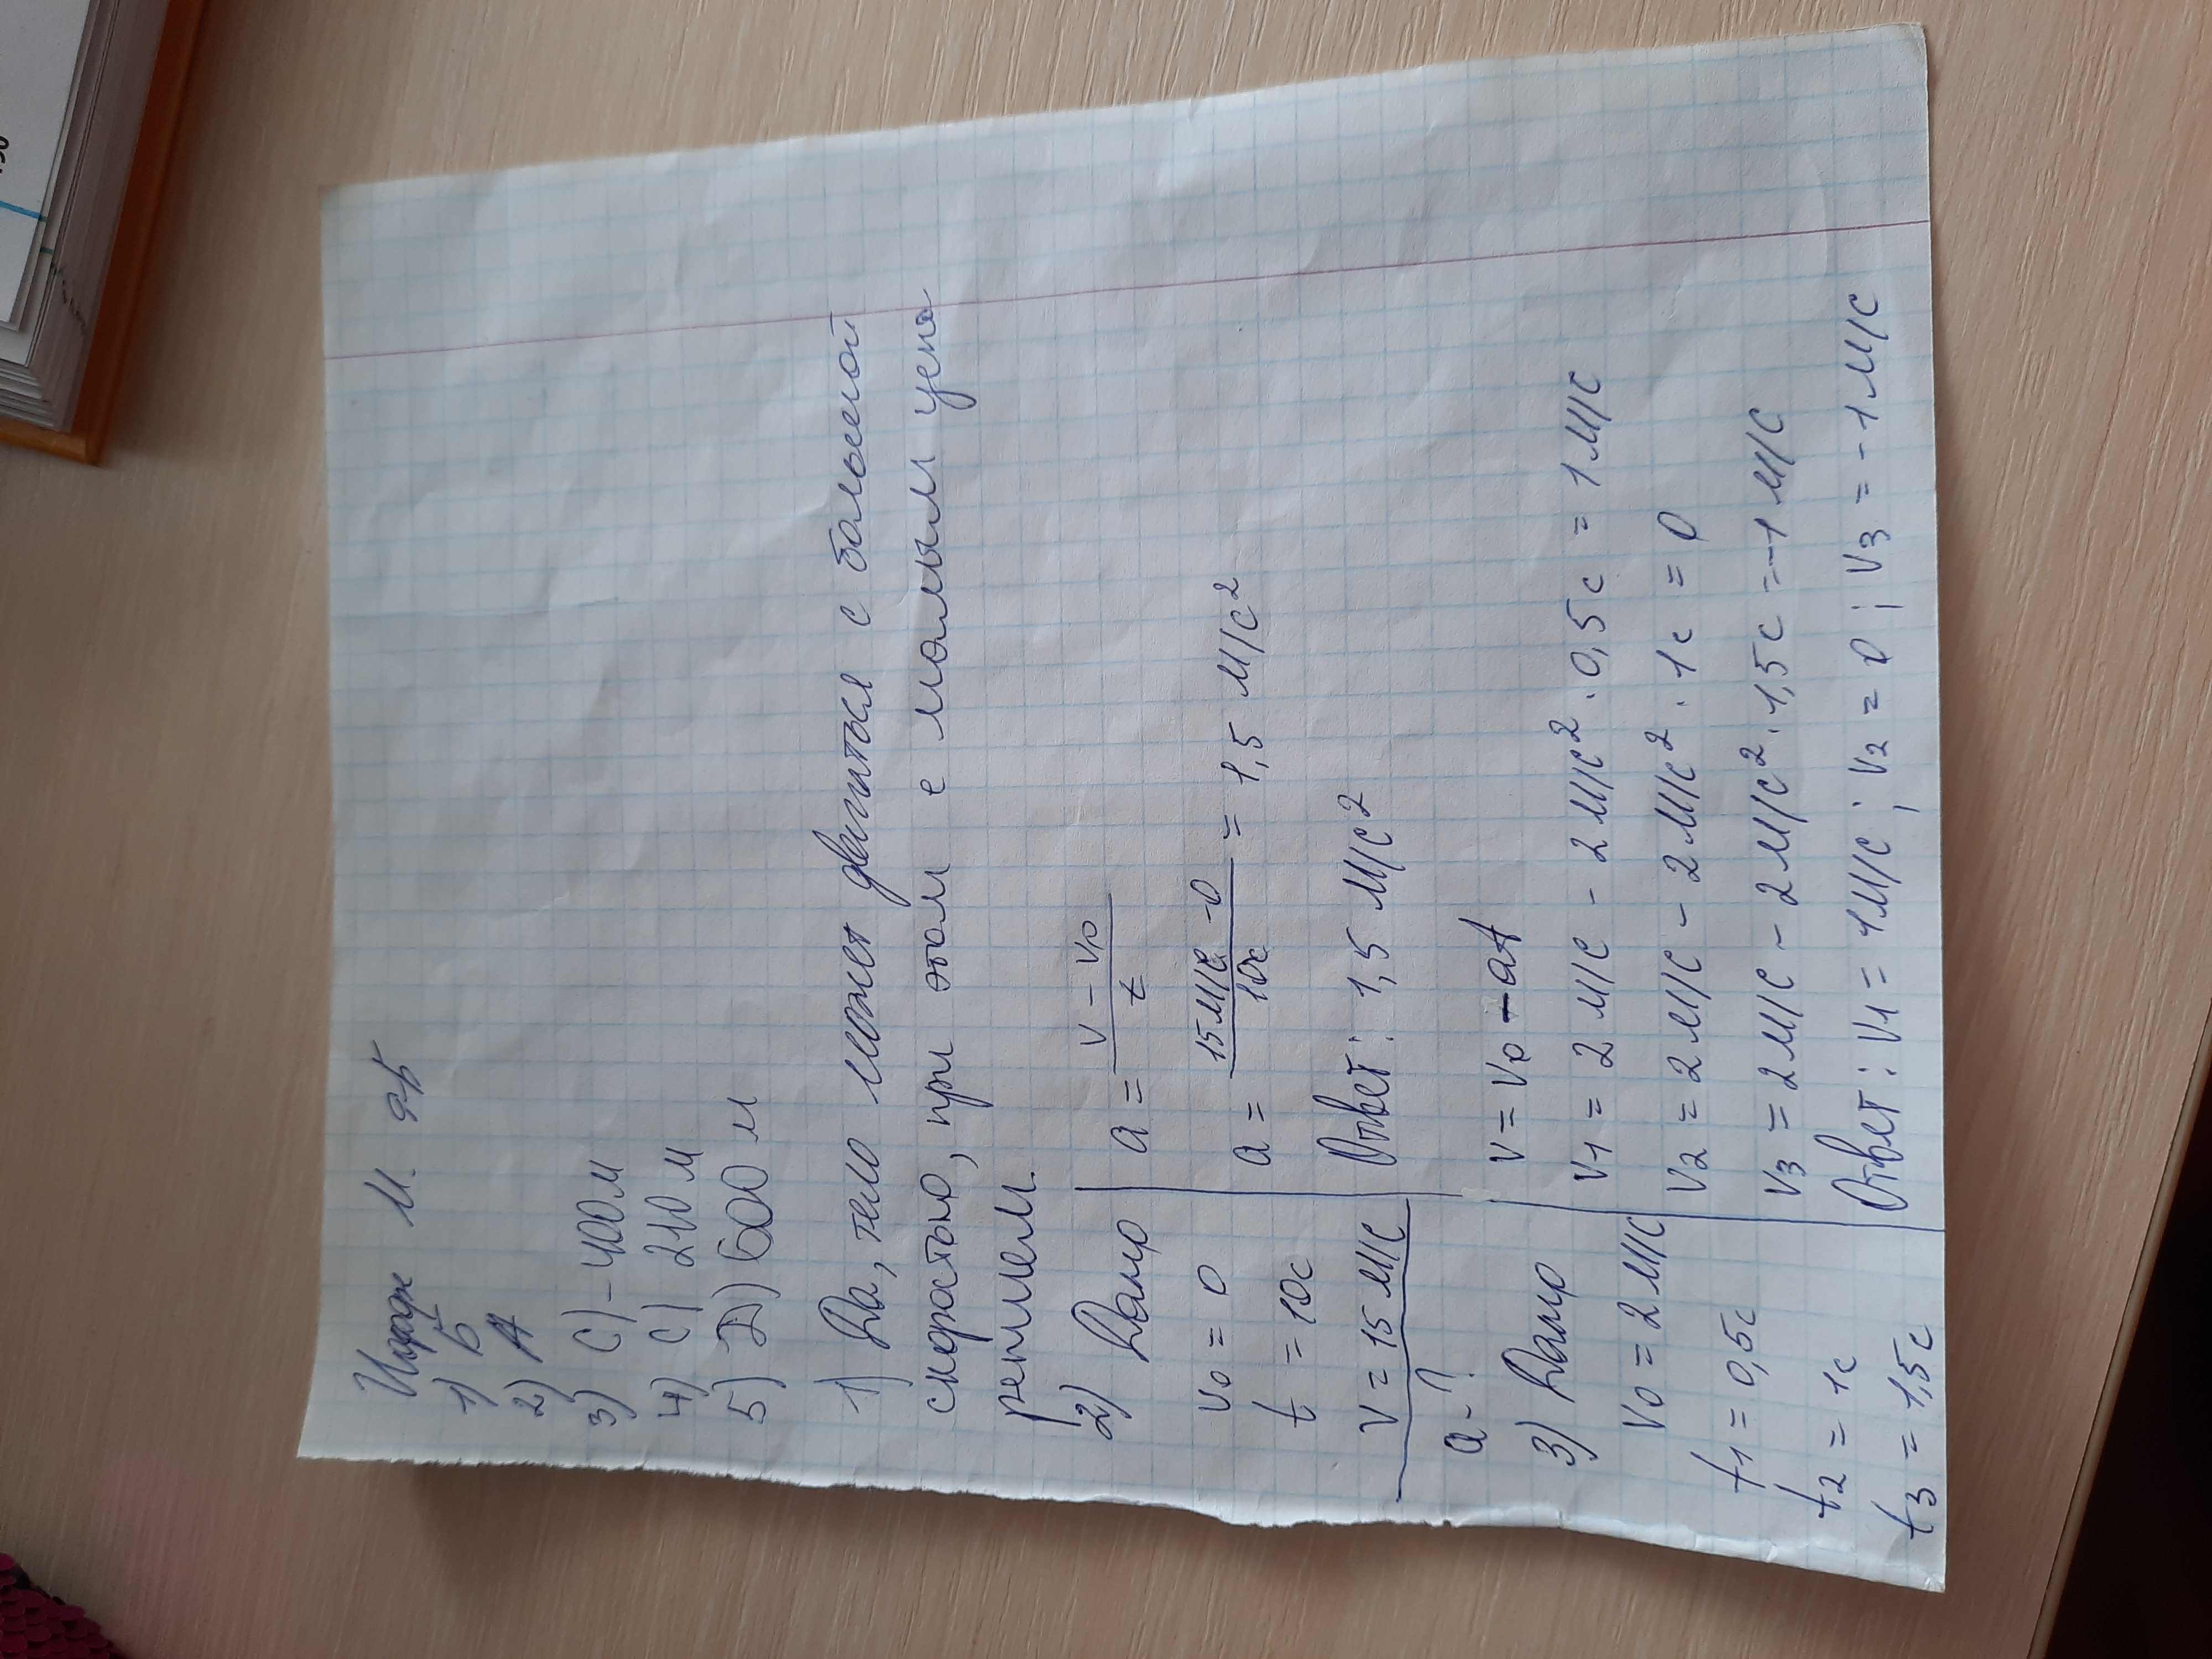 М. 9Б
1) Б
2) А
3) С) - 400 м
4) С) 210 м
5) Д) 600 м
1) Да, тело может двигаться с большой
скоростью, при этом с малым уско
рением.
2) Дано
V0 = 0
t = 10с
V = 15 м/с
a - ?
a = V - V0 / t
a = 15 м/с - 0 / 10с = 1,5 м/с²
Ответ: 1,5 м/с²
3) Дано
V0 = 2 м/с
t1 = 0,5с
t2 = 1с
t3 = 1,5с
V = V0 - at
V1 = 2 м/с - 2 м/с² · 0,5 с = 1 м/с
V2 = 2 м/с - 2 м/с² · 1с = 0
V3 = 2 м/с - 2 м/с² · 1,5 с = -1 м/с
Ответ: V1 = 1 м/с ; V2 = 0 ; V3 = -1 м/с